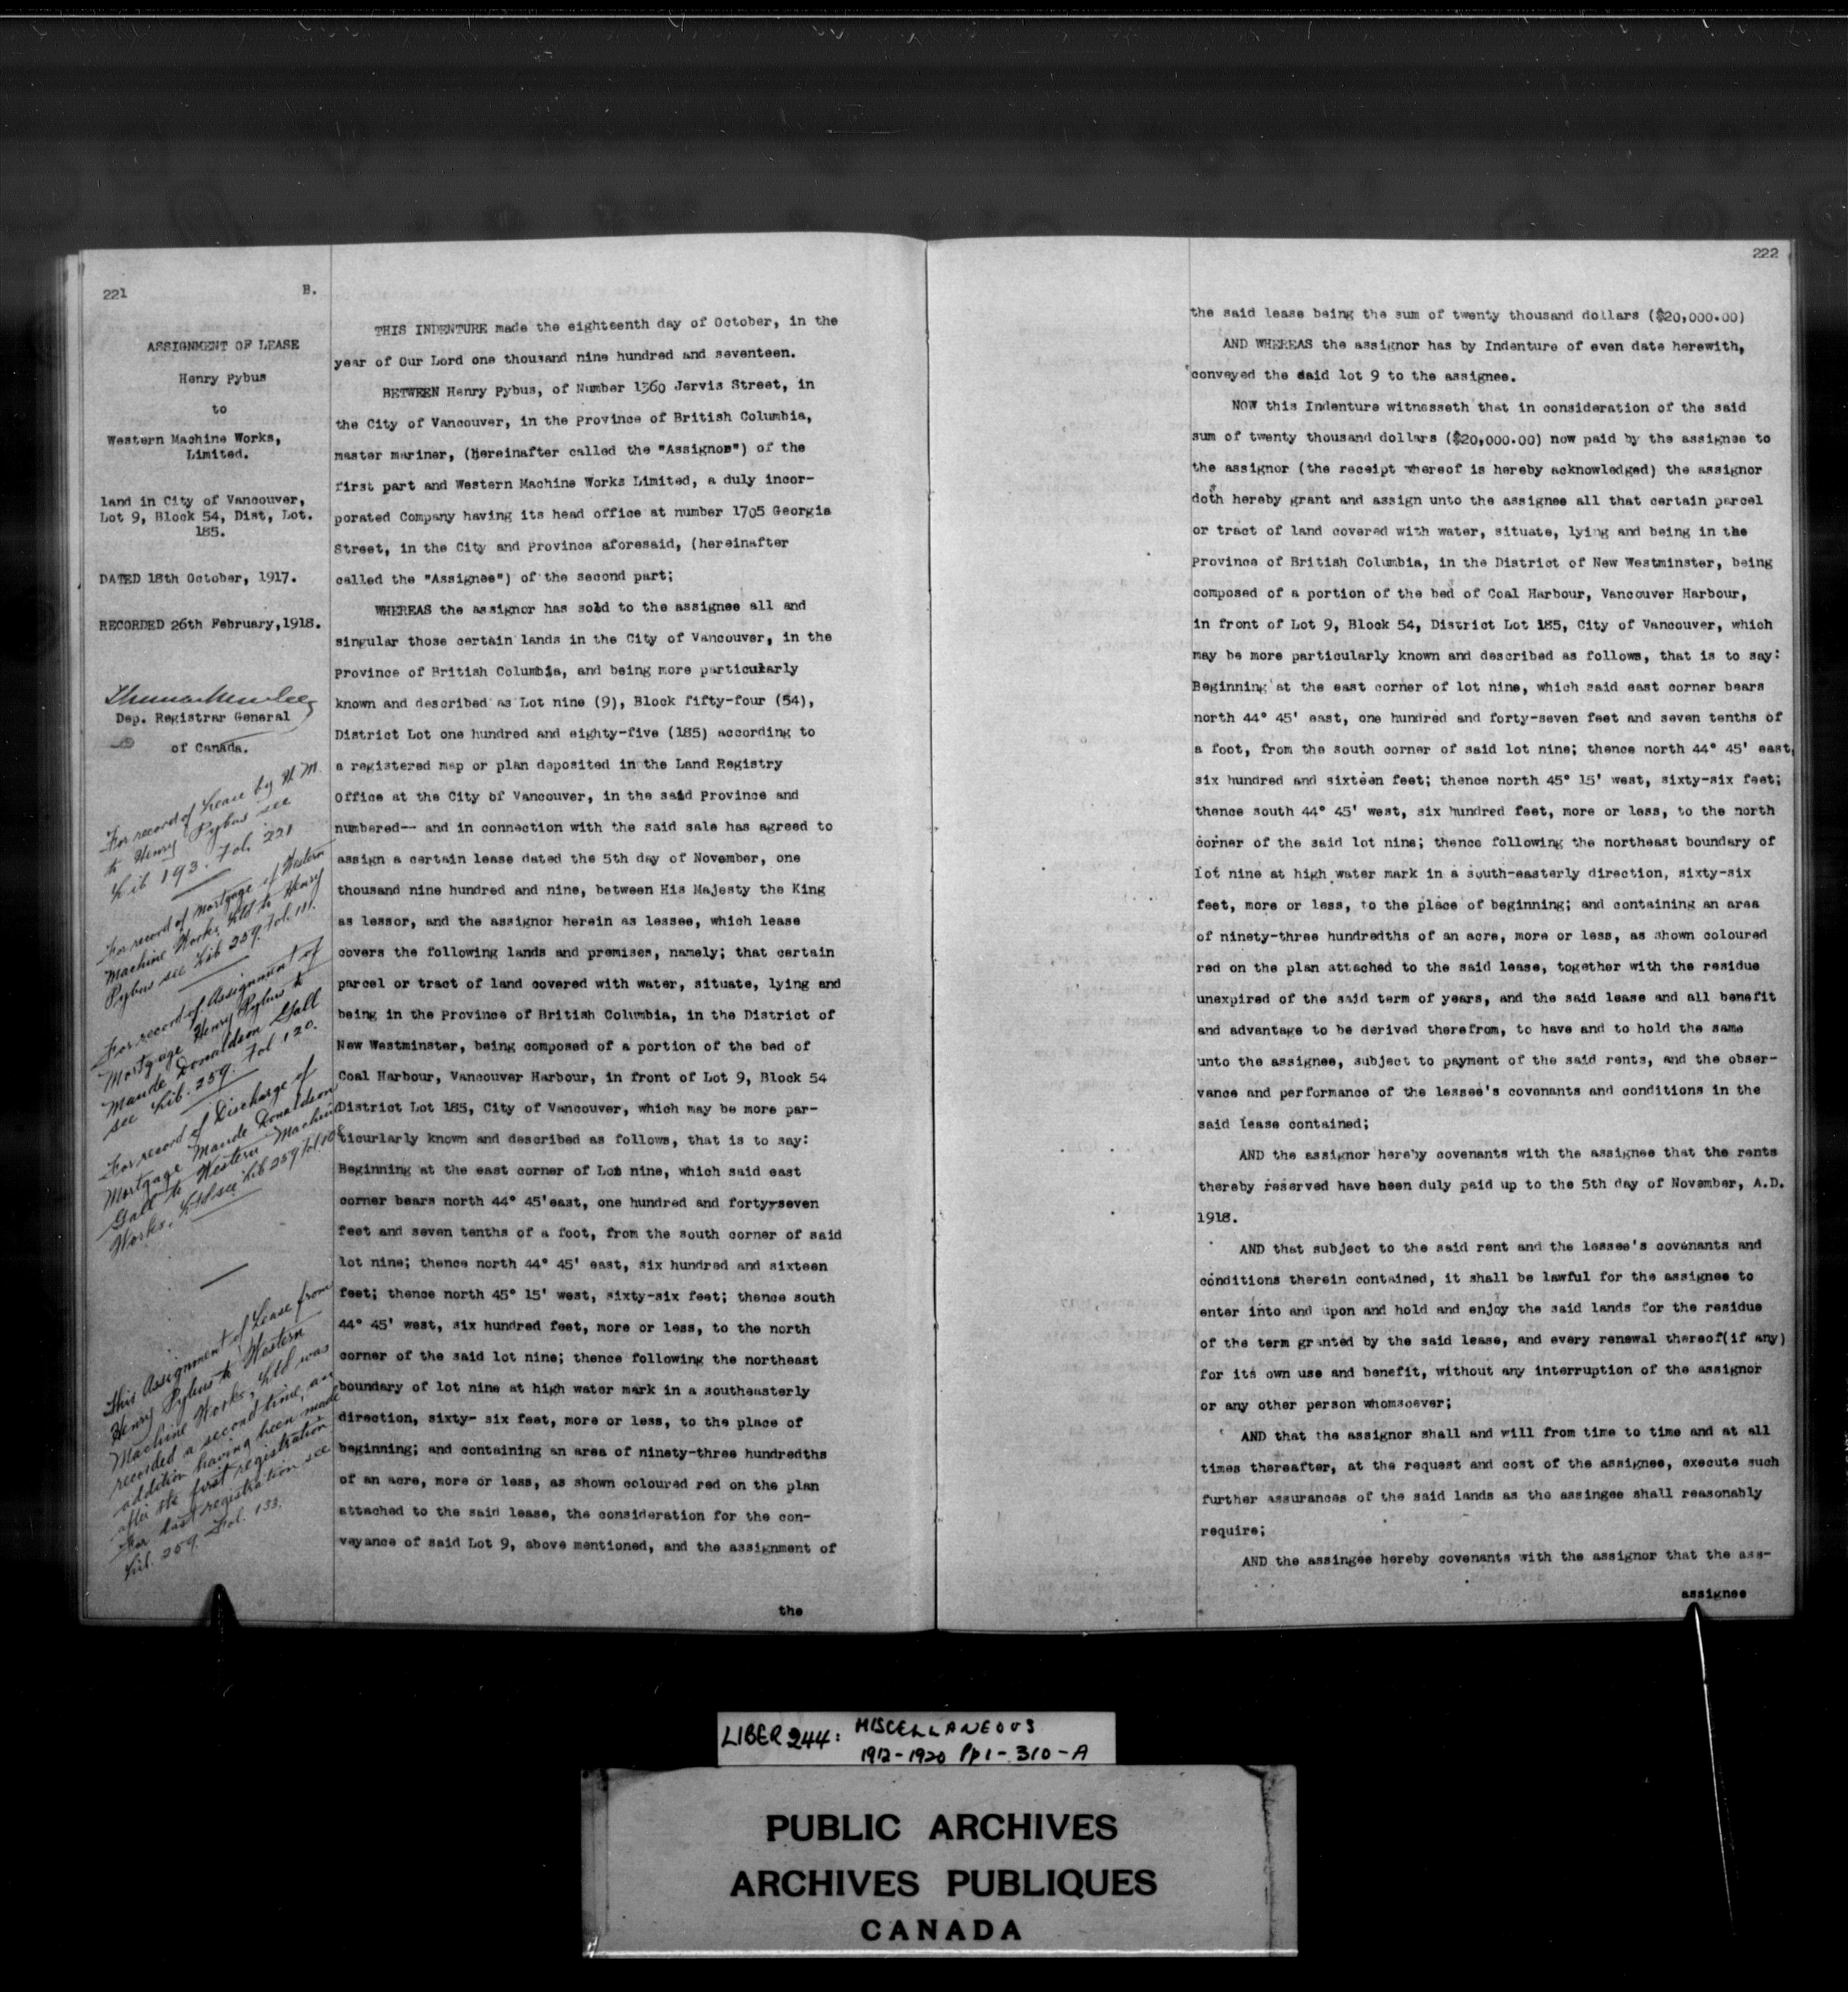 221
B.
ASSIGNMENT OF LEASE
Henry Pybus
to
Western Machine Works,
Limited.
land in City of Vancouver,
Lot 9, Block 54, Dist, Lot.
185.
DATED 18th October, 1917.
RECORDED 26th February,1918.
Dep. Registrar General
of Canada.
For record of Lease by H.M.
to Henry Pybus see
Lib 193. Fol. 221
For record of Mortgage of Western
Machine Works, Ltd to Henry
Pybus see Lib 259. Fol. 111.
For record of Assignment of
Mortgage Henry Pybus to
Maude Donaldson Gall
see Lib. 259. Fol 120.
For record of Discharge of
Mortgage Maude Donaldson
Gall to Western Machine
Works, Ltd see Lib 259 Fol.
This Assignment of Lease from
Henry Pybus to Western
Machine Works, Ltd was
recorded a second time, an
addition having been made
after the first registration
For last registration see
Lib. 259. Fol. 133.
THIS INDENTURE made the eighteenth day of October, in the
year of Our Lord one thousand nine hundred and seventeen.
BETWEEN Henry Pybus, of Number 1360 Jervis Street, in
the City of Vancouver, in the Province of British Columbia,
master mariner, (hereinafter called the "Assignor") of the
first part and Western Machine Works Limited, a duly incor-
porated Company having its head office at number 1705 Georgia
Street, in the City and Province aforesaid, (hereinafter
called the "Assignee") of the second part;
WHEREAS the assignor has sold to the assignee all and
singular those certain lands in the City of Vancouver, in the
Province of British Columbia, and being more particularly
known and described as Lot nine (9), Block fifty-four (54),
District Lot one hundred and eighty-five (185) according to
a registered map or plan deposited in the Land Registry
Office at the City of Vancouver, in the said Province and
numbered-- and in connection with the said sale has agreed to
assign a certain lease dated the 5th day of November, one
thousand nine hundred and nine, between His Majesty the King
as lessor, and the assignor herein as lessee, which lease
covers the following lands and premises, namely; that certain
parcel or tract of land covered with water, situate, lying and
being in the Province of British Columbia, in the District of
New Westminster, being composed of a portion of the bed of
Coal Harbour, Vancouver Harbour, in front of Lot 9, Block 54
District Lot 185, City of Vancouver, which may be more par-
ticurlarly known and described as follows, that is to say:
Beginning at the east corner of Lot nine, which said east
corner bears north 44° 45'east, one hundred and forty-seven
feet and seven tenths of a foot, from the south corner of said
lot nine; thence north 44° 45' east, six hundred and sixteen
feet; thence north 45° 15' west, sixty-six feet; thence south
44° 45' west, six hundred feet, more or less, to the north
corner of the said lot nine; thence following the northeast
boundary of lot nine at high water mark in a southeasterly
direction, sixty- six feet, more or less, to the place of
beginning; and containing an area of ninety-three hundredths
of an acre, more or less, as shown coloured red on the plan
attached to the said lease, the consideration for the con-
veyance of said Lot 9, above mentioned, and the assignment of
the
222
the said lease being the sum of twenty thousand dollars ($20,000.00)
AND WHEREAS the assignor has by Indenture of even date herewith,
conveyed the said lot 9 to the assignee.
NOW this Indenture witnesseth that in consideration of the said
sum of twenty thousand dollars ($20,000.00) now paid by the assignee to
the assignor (the receipt whereof is hereby acknowledged) the assignor
doth hereby grant and assign unto the assignee all that certain parcel
or tract of land covered with water, situate, lying and being in the
Province of British Columbia, in the District of New Westminster, being
composed of a portion of the bed of Coal Harbour, Vancouver Harbour,
in front of Lot 9, Block 54, District Lot 185, City of Vancouver, which
may be more particularly known and described as follows, that is to say:
Beginning at the east corner of lot nine, which said east corner bears
north 44° 45' east, one hundred and forty-seven feet and seven tenths of
a foot, from the south corner of said lot nine; thence north 44° 45' east,
six hundred and sixteen feet; thence north 45° 15' west, sixty-six feet;
thence south 44° 45' west, six hundred feet, more or less, to the north
corner of the said lot nine; thence following the northeast boundary of
lot nine at high water mark in a south-easterly direction, sixty-six
feet, more or less, to the place of beginning; and containing an area
of ninety-three hundredths of an acre, more or less, as shown coloured
red on the plan attached to the said lease, together with the residue
unexpired of the said term of years, and the said lease and all benefit
and advantage to be derived therefrom, to have and to hold the same
unto the assignee, subject to payment of the said rents, and the obser-
vance and performance of the lessee's covenants and conditions in the
said lease contained;
AND the assignor hereby covenants with the assignee that the rents
thereby reserved have been duly paid up to the 5th day of November, A.D.
1918.
AND that subject to the said rent and the lessee's covenants and
conditions therein contained, it shall be lawful for the assignee to
enter into and upon and hold and enjoy the said lands for the residue
of the term granted by the said lease, and every renewal thereof(if any)
for its own use and benefit, without any interruption of the assignor
or any other person whomsoever;
AND that the assignor shall and will from time to time and at all
times thereafter, at the request and cost of the assignee, execute such
further assurances of the said lands as the assingee shall reasonably
require;
AND the assingee hereby covenants with the assignor that the ass-
assignee
LIBER 244: MISCELLANEOUS
1912-1920 Pp 1-310-A
PUBLIC ARCHIVES
ARCHIVES PUBLIQUES
CANADA